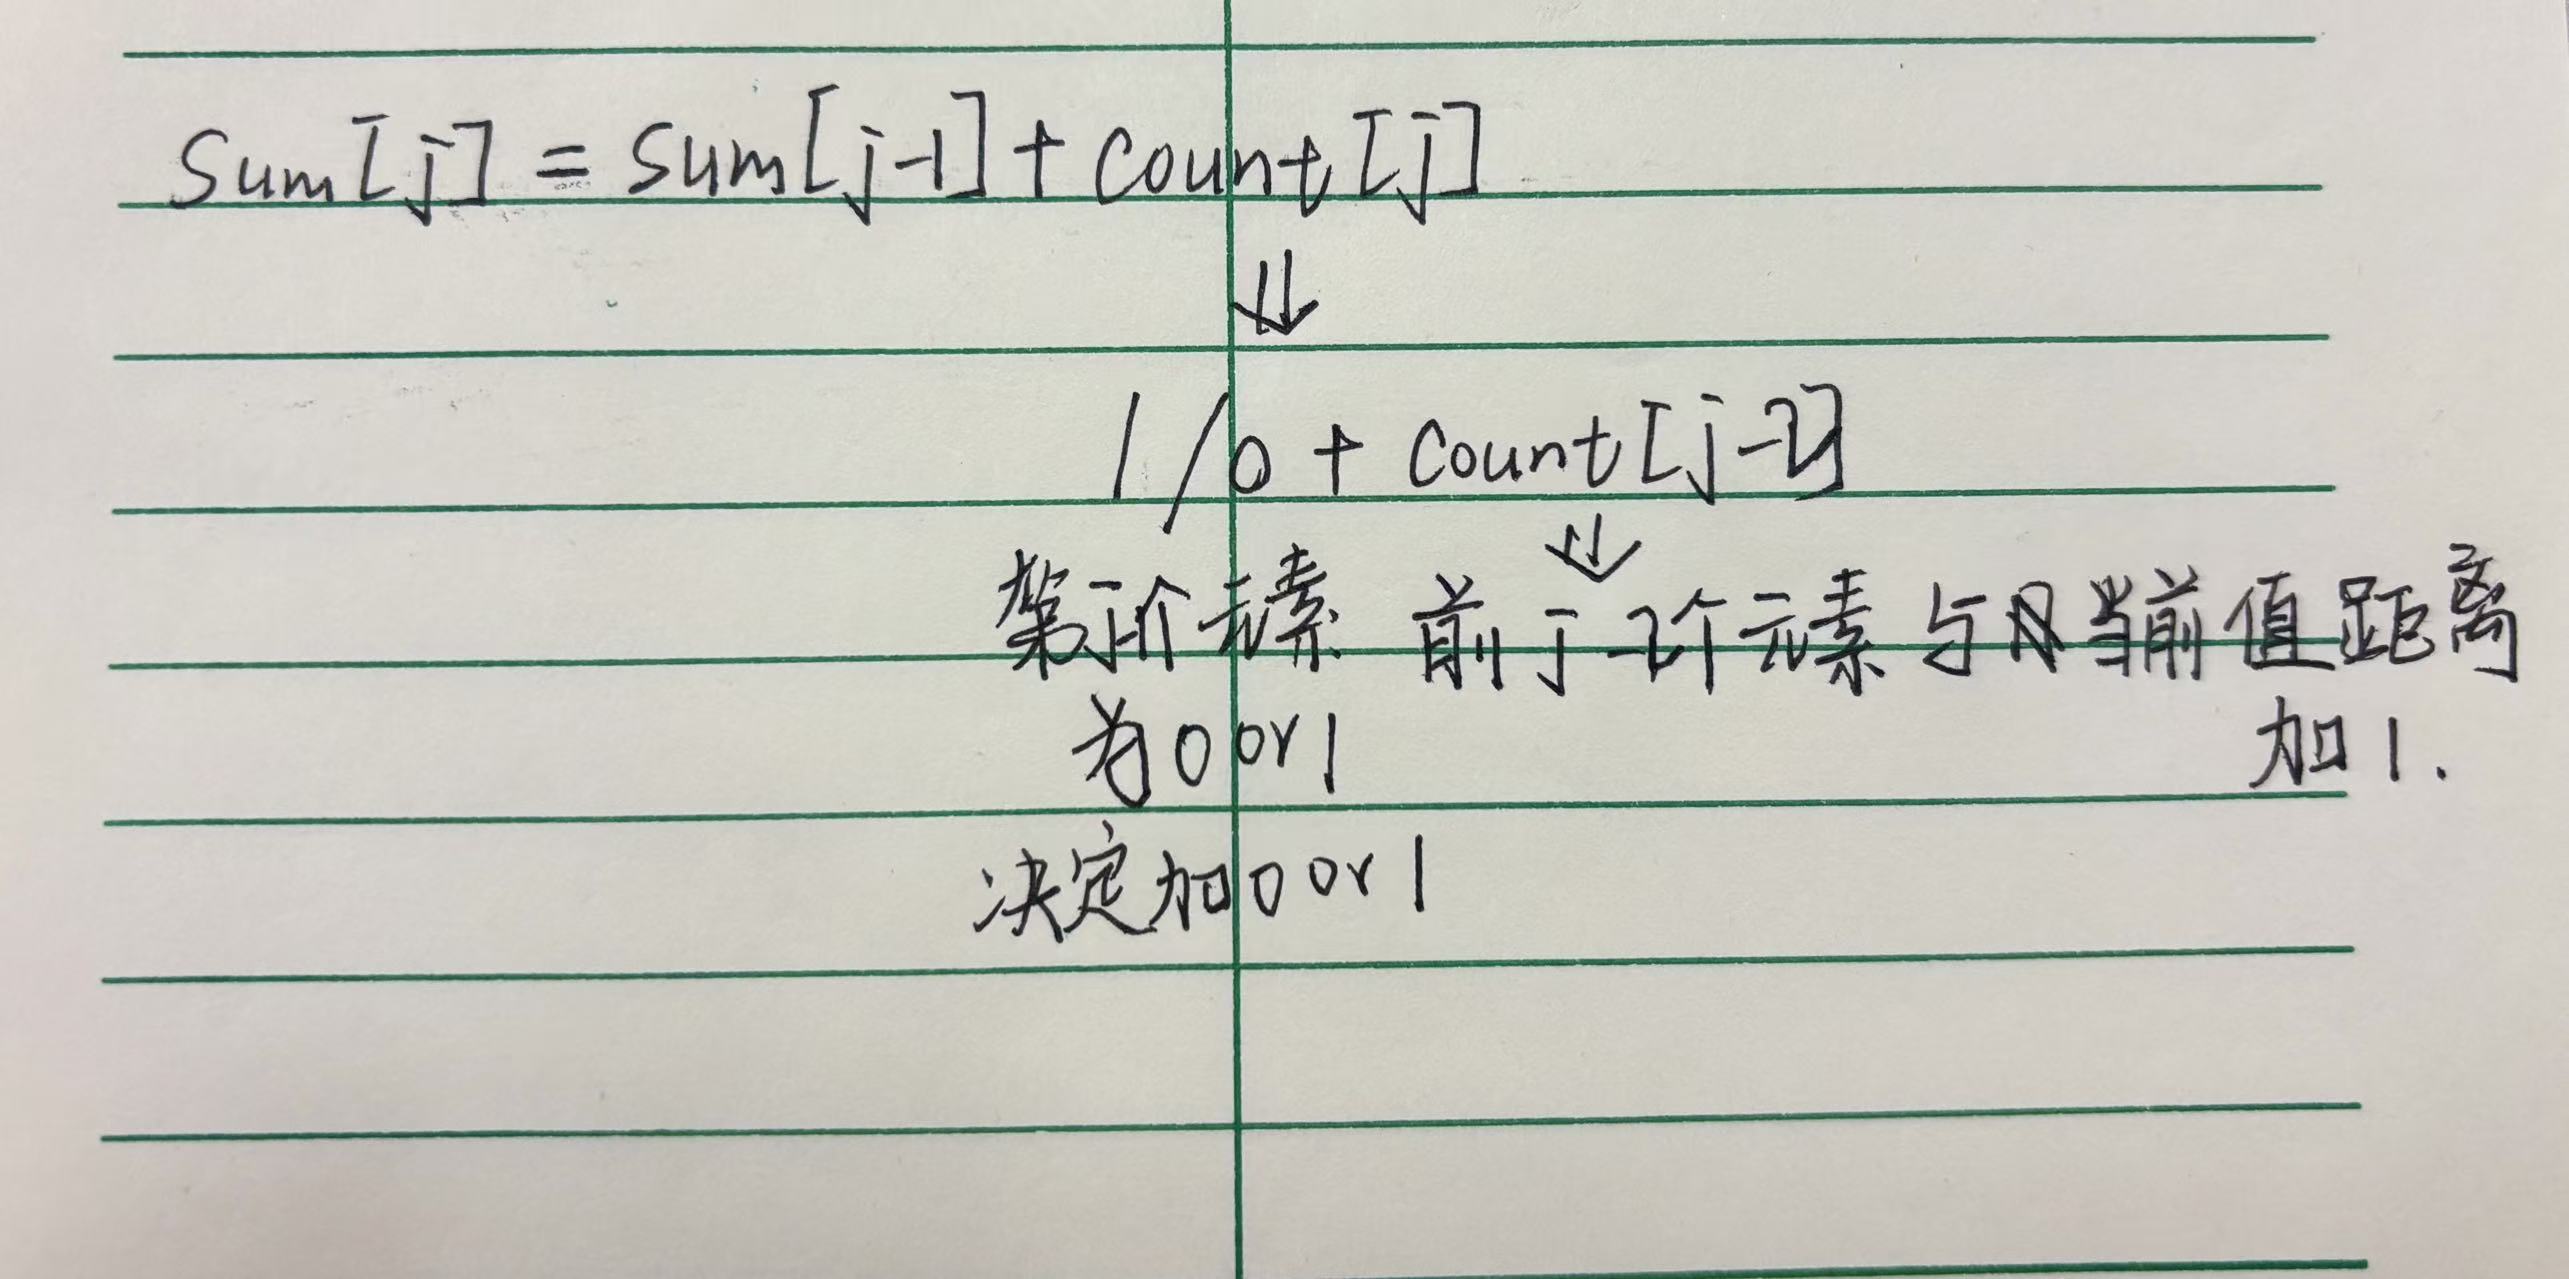 Sum[j] = Sum[j-1] + Count[j]
⇓
1/0 + Count[j-2]
⇓
第j-1个元素 前j-2个元素与当前值距离
为0 or 1 加1.
决定加0 or 1